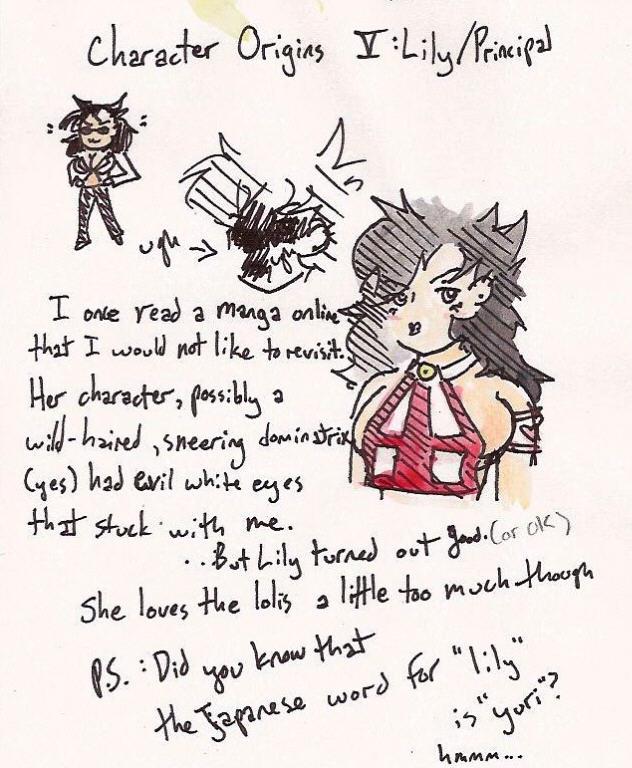 Character Origins V: Lily/Principal
ugh →
I once read a manga online
that I would not like to revisit.
Her character, possibly a
wild-haired, sneering dominatrix
(yes) had evil white eyes
that stuck with me.
..But Lily turned out good. (or ok)
She loves the lolis a little too much though
P.S.: Did you know that
the Japanese word for "lily"
is "yuri"?
hmmm...